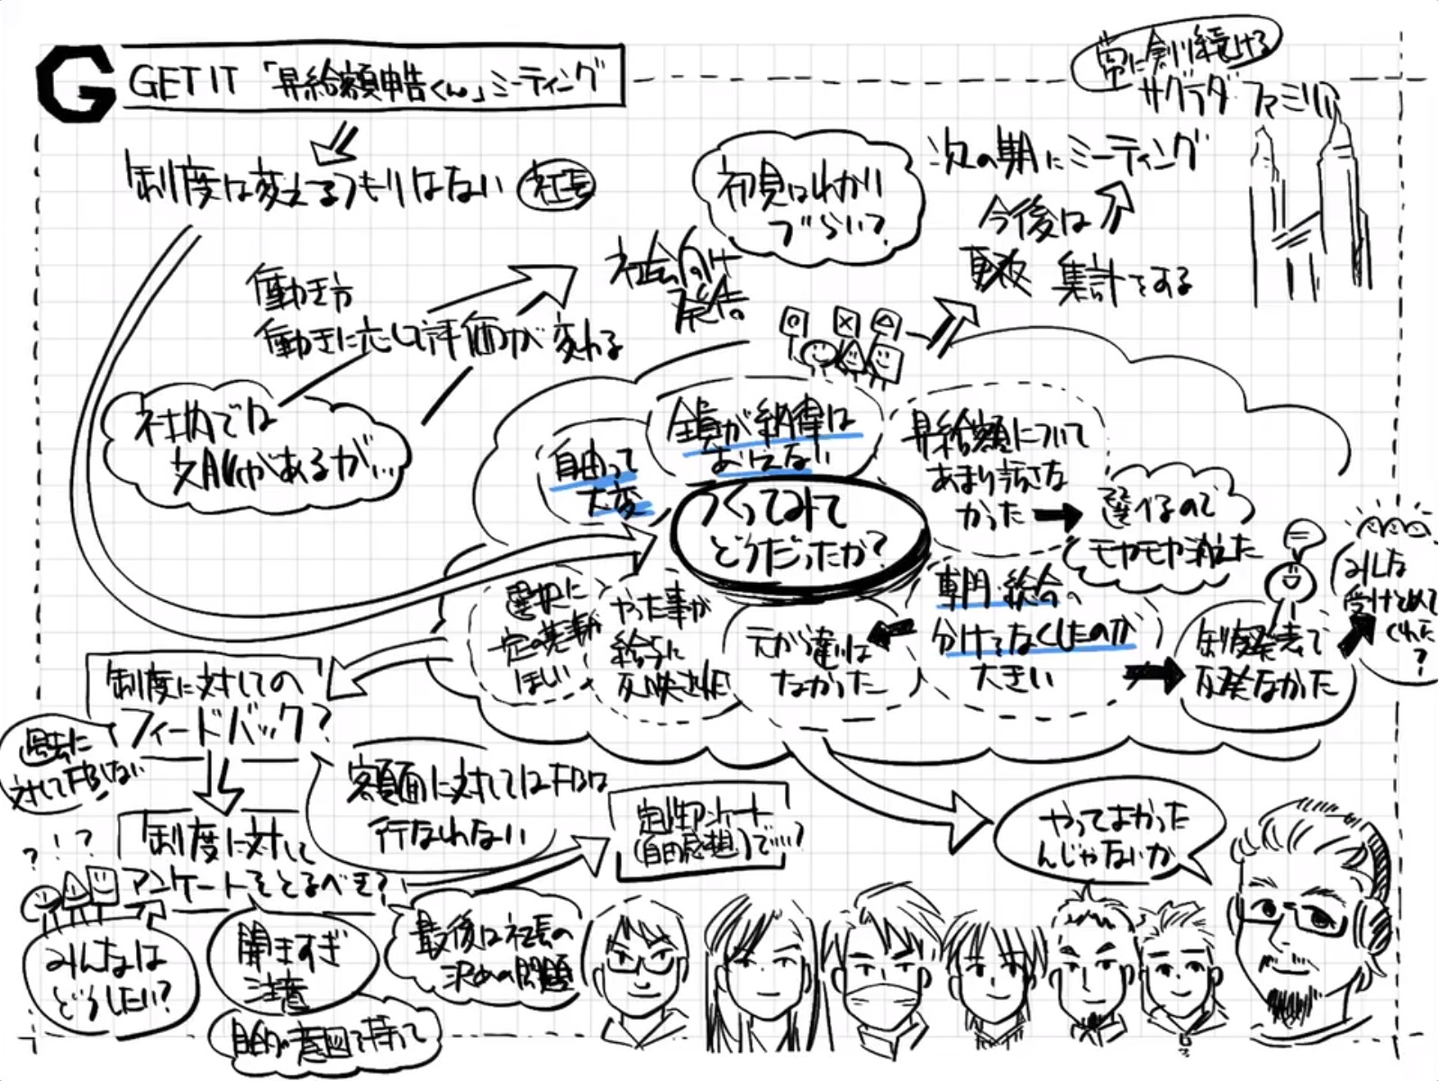 G GET IT 「昇給額申告くん」ミーティング
常に創り続ける
サグラダファミリア
制度は変えるつもりはない 社長
初見はわかり
づらい?
次の期にミーティング
今後は
集計をする
社会の
働き方
働きに応じて評価が変わる
社内では
文脈があるが…
自由って
大変
全員が納得は
おえない
昇給額について
あまり話さな
かった
選べるので
モヤモヤ消えた
つくってみて
どうだったか?
選択に
一定の基準が
ほしい
やった事が
給与に
反映された
元から違いは
なかった
専門・総合
分けてなくしたのが
大きい
制度発表で
反発なかった
みんな
受けとめて
くれた?
制度に対しての
フィードバック?
過去に
対してFBしない
額面に対してはFBは
行なわれない
定性アンケート
(自由感想)で…?
やってよかった
んじゃないか
? ! ?
制度に対して
アンケートをとるべき?
みんなは
どうしたい?
聞きすぎ
注意
目的や意図を持って
最後は社長の
決めの問題